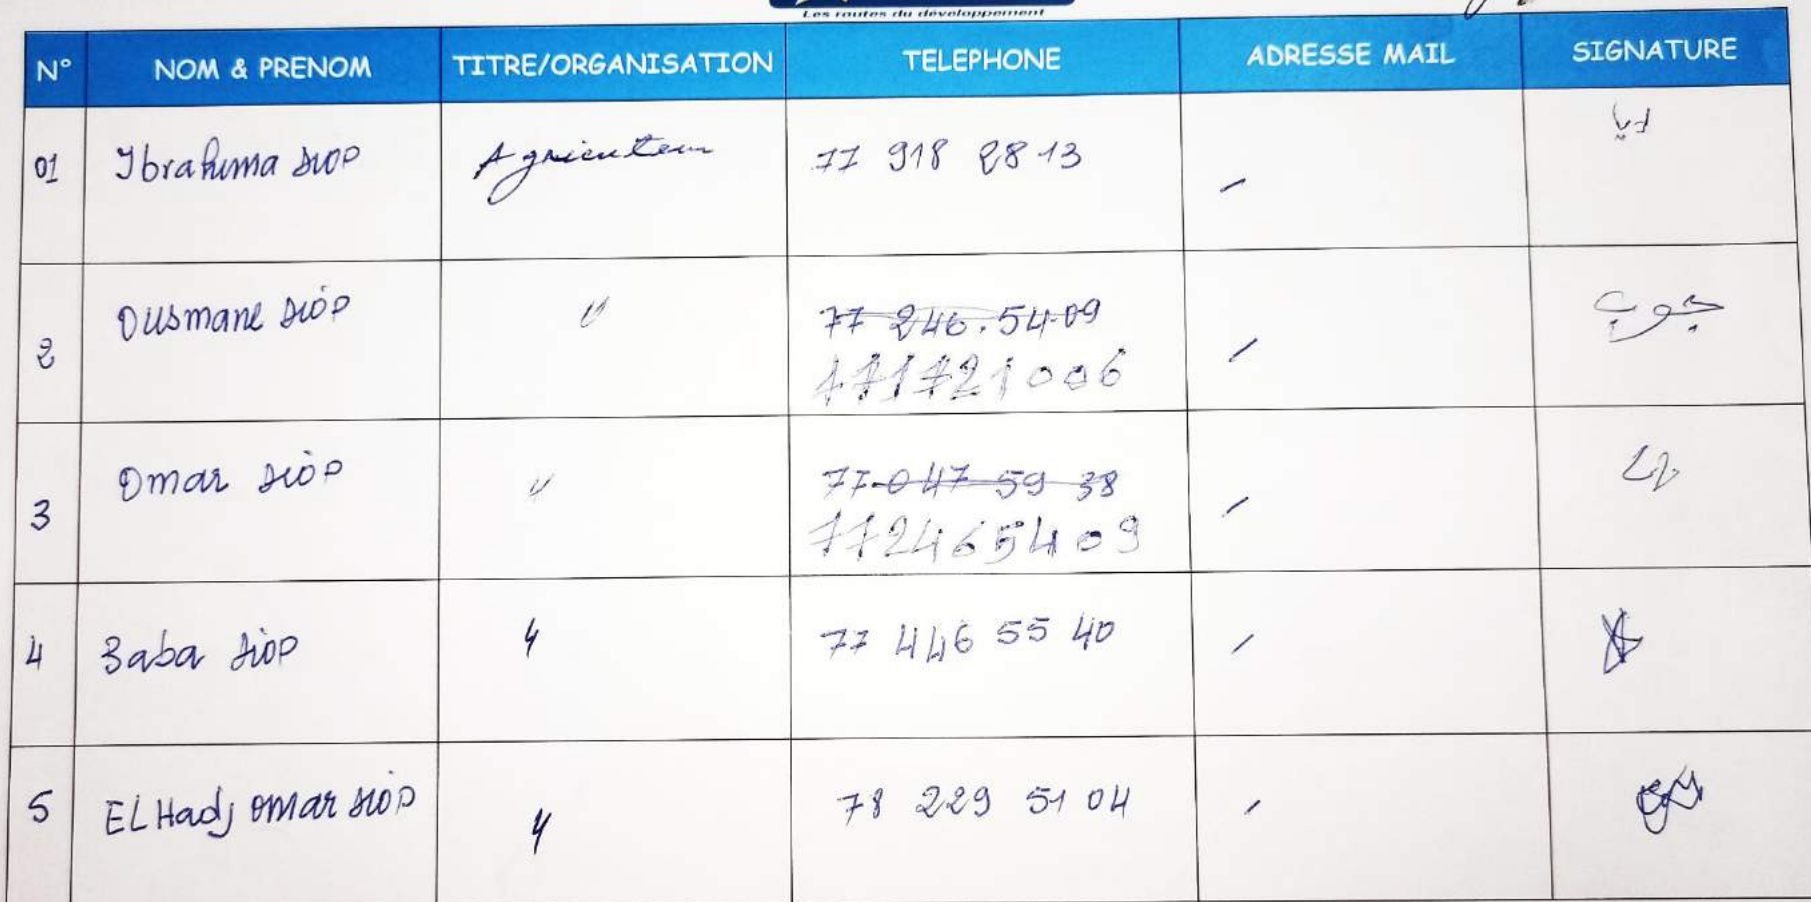 Les routes du développement
N° NOM & PRENOM TITRE/ORGANISATION TELEPHONE ADRESSE MAIL SIGNATURE
01 Ibrahima DIOP Agriculteur 77 918 28 13 /
2 Ousmane DIOP " 77 246.54.09 / جوب
771721006
3 Omar DIOP " 77 047 59 38 /
772465409
4 Baba DIOP " 77 446 55 40 /
5 EL Hadj Omar DIOP " 78 229 51 04 /